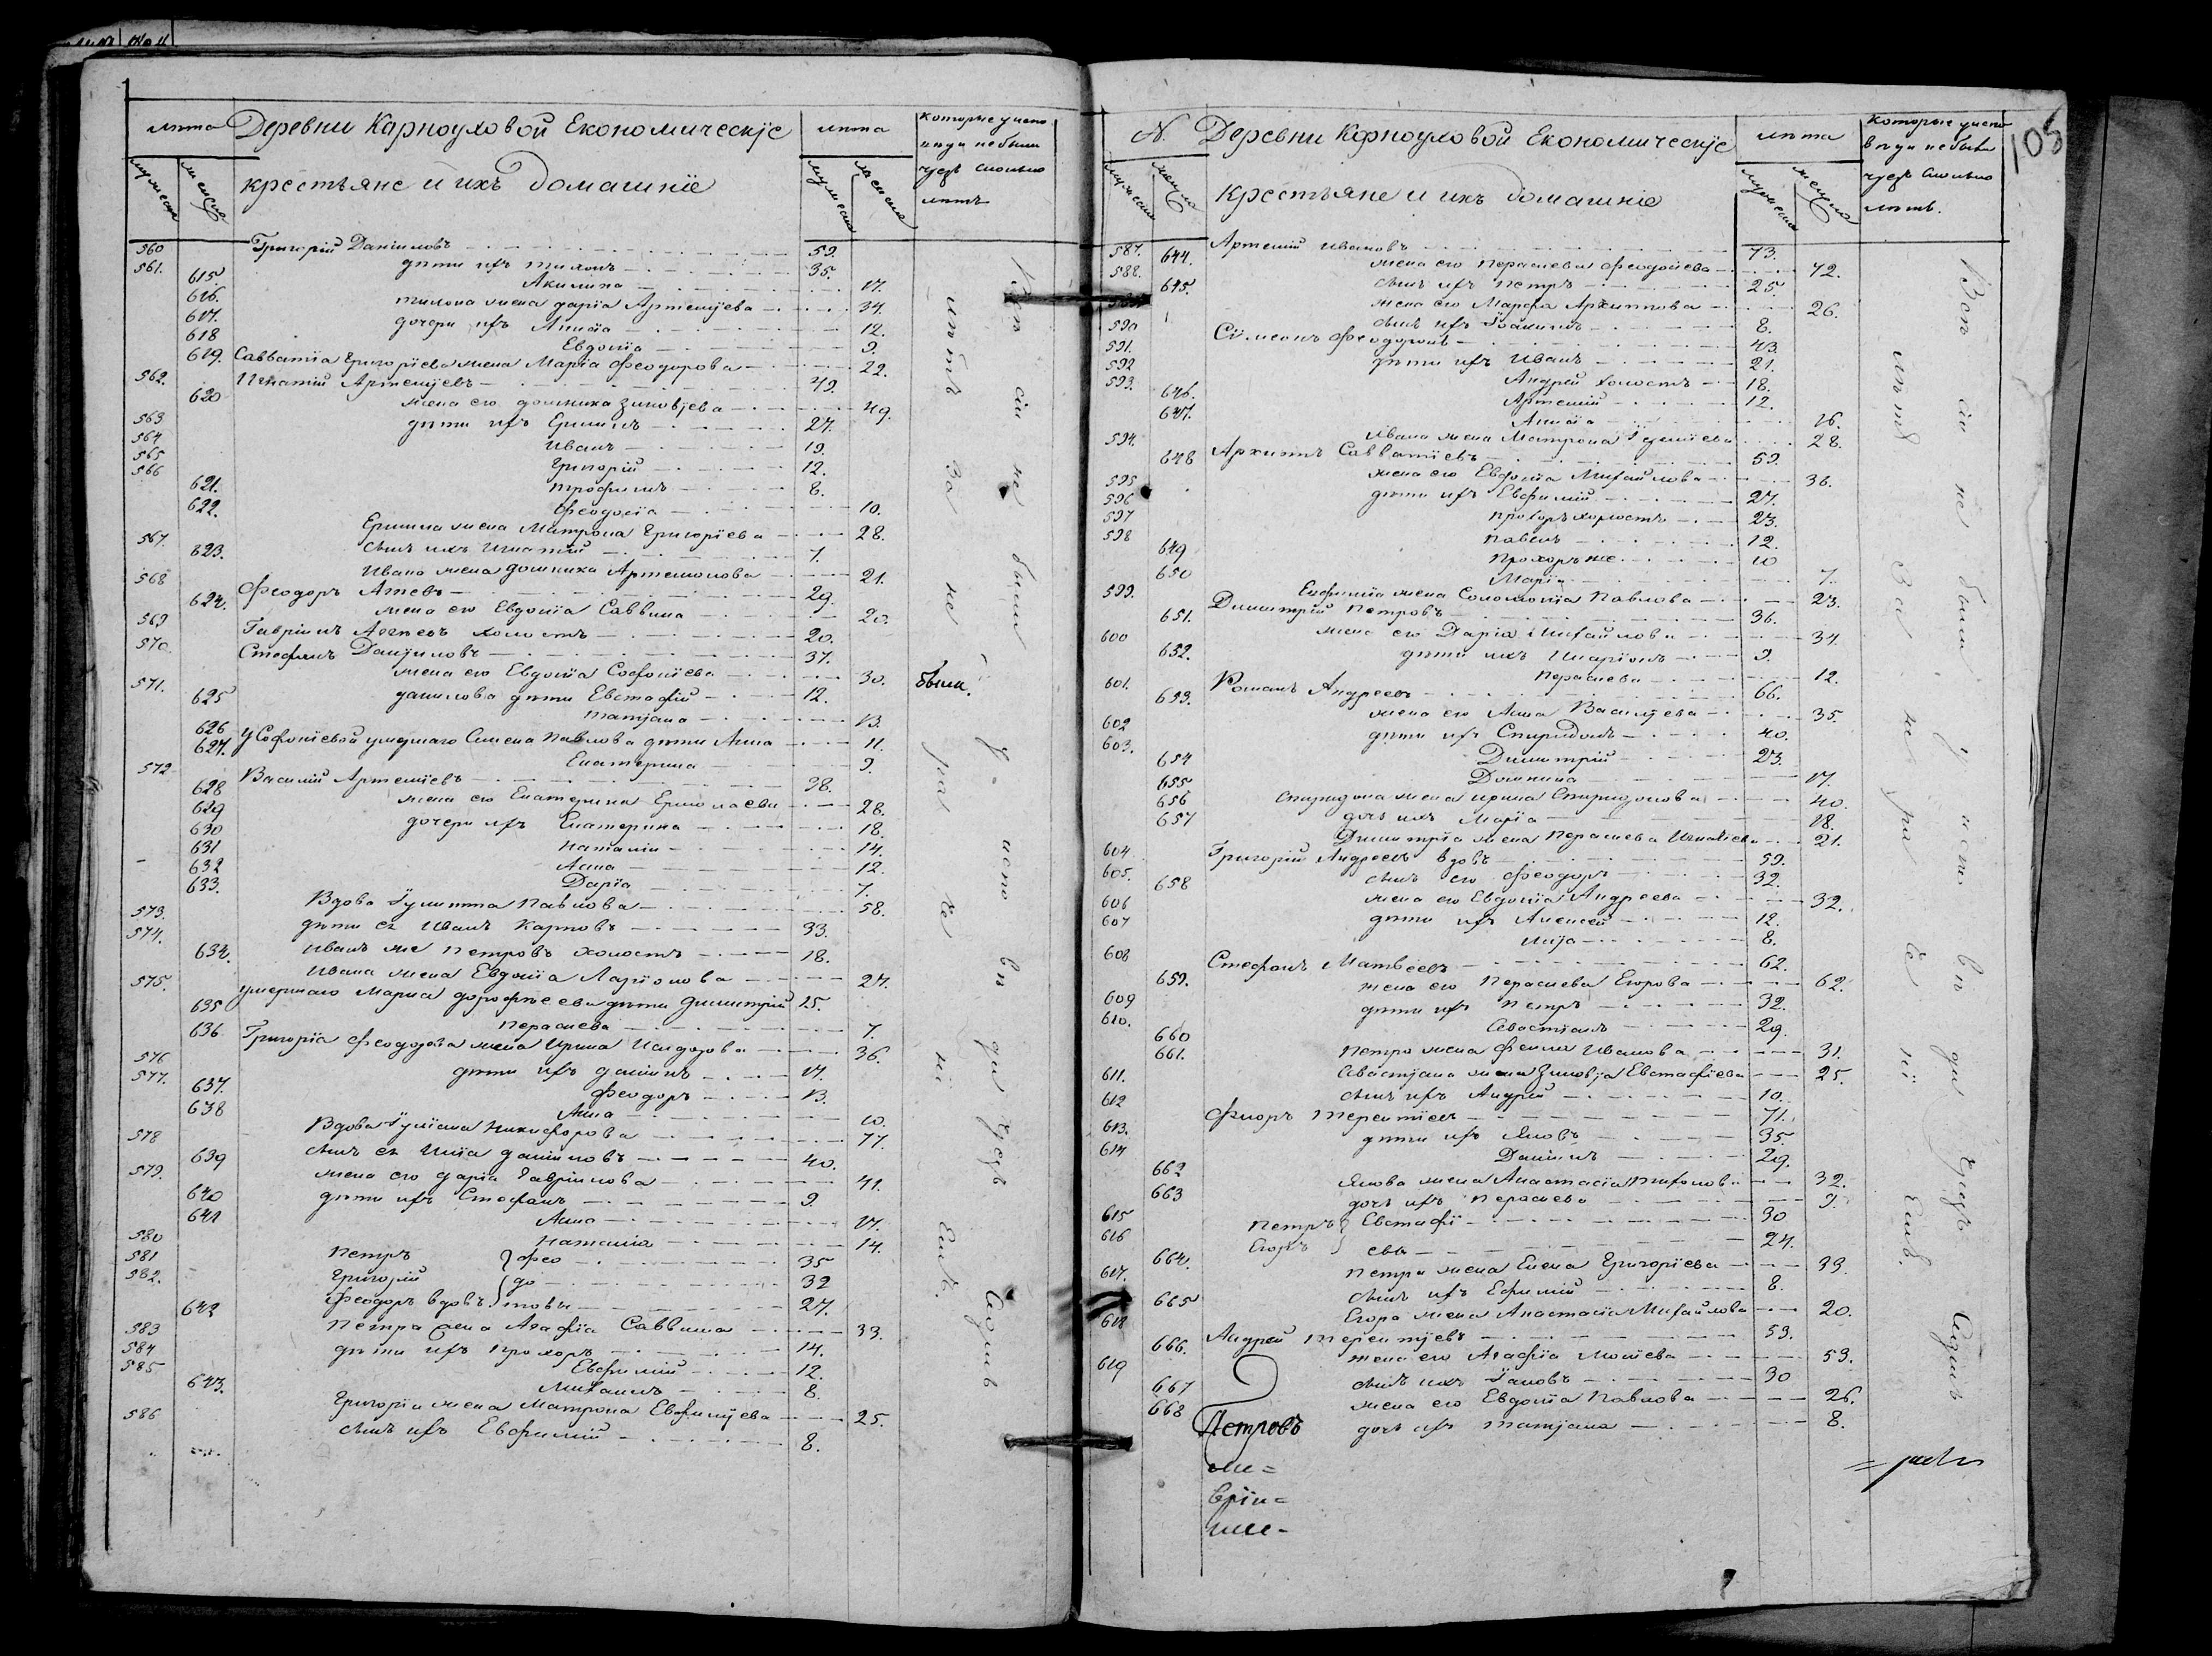 лѣта Деревни Карноуховой Економическіе лѣта
крестьяне и ихъ домашніе
мужеска женска
которые у испо
560 Григорій Даніиловъ 59.
561. дѣти ихъ Тихонъ 35.
615 Акилина 17.
616. Тихона жена Дарія Артемѣева 34.
617. дочери ихъ Анисія 12.
618 Евдокія 9.
619. Савватія Григоріева жена Марія Феодорова 22.
562. Игнатій Артемѣевъ 49.
620 жена его Домника Зиновѣева 49.
563 дѣти ихъ Ермилъ 27.
564 Иванъ 19.
565 Григорій 12.
566 Трофимъ 8.
621. Феодосія 10.
622. Ермила жена Матрона Григоріева 28.
567. сынъ ихъ Игнатій 7.
623. Ивана жена Домника Артемонова 21.
568 Феодоръ Агѣевъ 29.
624. жена его Евдокія Саввина 20.
569 Гавріилъ Агѣевъ холостъ 20.
570. Стефанъ Даниловъ 37.
жена его Евдокія Софоніева 30.
571. Данилова дѣти Евстафій 12.
625 Татіана 13.
626 У Софоніевой умершаго Симона Павлова дѣти Анна 11.
627. Екатерина 9.
572 Василій Артеміевъ 38.
628 жена его Екатерина Ермолаева 28.
629 дочери ихъ Екатерина 18.
630 Наталія 14.
631 Анна 12.
632 Дарія 7.
633. Вдова Гулитта Павлова 58.
573. дѣти ея Иванъ Карповъ 33.
574. Иванъ же Петровъ холостъ 18.
634. Ивана жена Евдокія Ларіонова 27.
575. умершаго Марка Дорофѣева дѣти Димитрій 15.
635 Пераскева 7.
636 Григорія Феодорова жена Ирина Исидорова 36.
576 дѣти ихъ Даніилъ 17.
577. Феодоръ 13.
637. Анна 10.
638 Вдова Іуліана Никифорова 77.
578 сынъ ея Илія Даніиловъ 40.
639 жена его Дарія Гавріилова 41.
579. дѣти ихъ Стефанъ 9.
640 Анна 17.
641 Наталія 14.
580 Петръ Фео 35
581 Григорій до 32
582. Феодоръ вдовъ товы 27.
642 Петра жена Агафія Саввина 33.
583 дѣти ихъ Прохоръ 14.
584 Евфимій 12.
585 Михаилъ 8.
643. Григорія жена Матрона Евфимѣева 25.
586 сынъ ихъ Евфимій 8.
Всѣ сіи были у исповѣди чрезъ Единъ
лѣтъ за не были.
N. Деревни Карноуховой Економическіе лѣта
крестьяне и ихъ домашніе
мужеска женска
105
587. Артемій Ивановъ 73.
644. жена его Пераскева Феодосіева 72.
588. сынъ ихъ Петръ 25.
645. жена его Марфа Архиппова 26.
сынъ ихъ Іоакимъ 8.
590 Сімеонъ Феодоровъ 43.
591. дѣти ихъ Иванъ 21.
592 Андрей холостъ 18.
593. Артемій 12.
646. Анисія 16.
647. Ивана жена Матрона 28.
594. Архиппъ Савватіевъ 59.
648 жена его Евдокія Михайлова 36.
595 дѣти ихъ Евфимій 27.
596 Прохоръ холостъ 23.
597 Павелъ 12.
598 Прохоръ же 10
649 Марія 7.
650 Евфимія жена Соломонія Павлова 23.
599. Димитрій Петровъ 36.
651. жена его Дарія Михайлова 34.
600 дѣти ихъ Иларіонъ 9.
652. Пераскева 12.
601. Романъ Андреевъ 66.
653. жена его Анна Василѣева 35.
602 дѣти ихъ Спиридонъ 40.
603. Димитрій 23.
654 Домника 17.
655 Спиридона жена Ирина Спиридонова 40.
656 дочь ихъ Марія 18.
657 Димитрія жена Пераскева Игнатіева 21.
604 Григорій Андреевъ вдовъ 59.
605. сынъ его Феодоръ 32.
658 жена его Евдокія Андреева 32.
606 дѣти ихъ Алексей 12.
607 Илія 8.
608 Стефанъ Матвеевъ 62.
659. жена его Пераскева Егорова 62.
609 дѣти ихъ Петръ 32.
610. Севастіанъ 29.
660 Петра жена Фекла Иванова 31.
661. Севастіана жена Зиновія Евстафіева 25.
611. сынъ ихъ Андрей 10.
612 Флоръ Терентіевъ 71.
613. дѣти ихъ Яковъ 35.
614 Даніилъ 29.
662 Якова жена Анастасія 32.
663 дочь ихъ Пераскева 9.
615 Петръ Евстафі 30
616 Егоръ евы 24.
664. Петра жена Елена Григоріева 33.
617. сынъ ихъ Ефимій 8.
665 Егора жена Анастасія Михайлова 20.
618 Андрей Терентѣевъ 53.
666. жена его Агафія Моисіева 53.
619 сынъ ихъ Іаковъ 30
667 жена его Евдокія Павлова 26.
668 дочь ихъ Татіана 8.
Петровъ